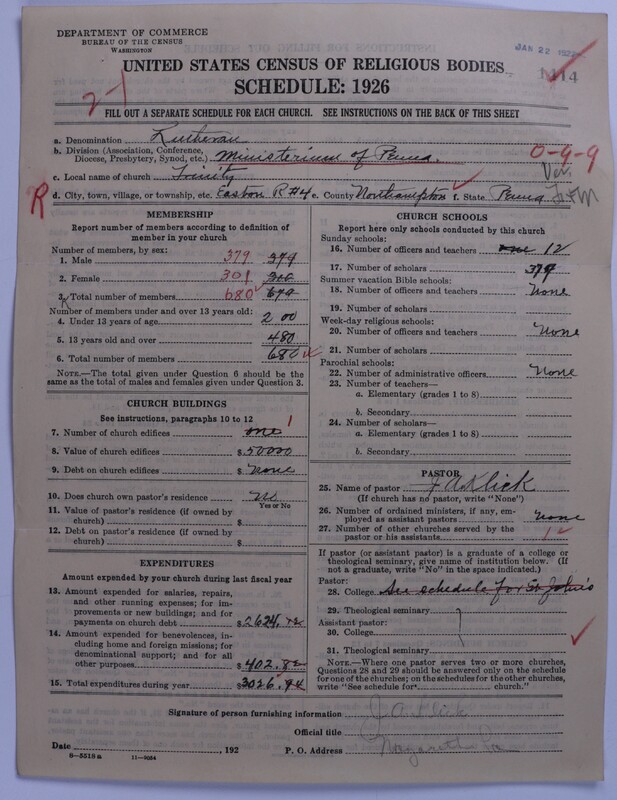 DEPARTMENT OF COMMERCE
BUREAU OF THE CENSUS
WASHINGTON
JAN 22 1927
1414
UNITED STATES CENSUS OF RELIGIOUS BODIES
SCHEDULE: 1926
2-1
FILL OUT A SEPARATE SCHEDULE FOR EACH CHURCH. SEE INSTRUCTIONS ON THE BACK OF THIS SHEET
a. Denomination Lutheran
b. Division (Association, Conference, Diocese, Presbytery, Synod, etc.) Ministerium of Penna. 0-9-9
c. Local name of church Trinity Ver.
R d. City, town, village, or township, etc. Easton R#4 e. County Northampton f. State Penna
MEMBERSHIP
Report number of members according to definition of member in your church
Number of members, by sex:
1. Male 379 379
2. Female 301
3. Total number of members 680 679
Number of members under and over 13 years old:
4. Under 13 years of age 200
5. 13 years old and over 480
6. Total number of members 680
NOTE.—The total given under Question 6 should be the same as the total of males and females given under Question 3.
CHURCH BUILDINGS
See instructions, paragraphs 10 to 12
7. Number of church edifices one 1
8. Value of church edifices $50000
9. Debt on church edifices $None
10. Does church own pastor's residence No
Yes or No
11. Value of pastor's residence (if owned by church) $
12. Debt on pastor's residence (if owned by church) $
EXPENDITURES
Amount expended by your church during last fiscal year
13. Amount expended for salaries, repairs, and other running expenses; for improvements or new buildings; and for payments on church debt $2624.12
14. Amount expended for benevolences, including home and foreign missions; for denominational support; and for all other purposes $402.82
15. Total expenditures during year $3026.94
CHURCH SCHOOLS
Report here only schools conducted by this church
Sunday schools:
16. Number of officers and teachers one 12
17. Number of scholars 379
Summer vacation Bible schools:
18. Number of officers and teachers None
19. Number of scholars
Week-day religious schools:
20. Number of officers and teachers None
21. Number of scholars
Parochial schools:
22. Number of administrative officers None
23. Number of teachers—
a. Elementary (grades 1 to 8)
b. Secondary
24. Number of scholars—
a. Elementary (grades 1 to 8)
b. Secondary
PASTOR
25. Name of pastor J A Klick
(If church has no pastor, write "None")
26. Number of ordained ministers, if any, employed as assistant pastors None
27. Number of other churches served by the pastor or his assistants 1
If pastor (or assistant pastor) is a graduate of a college or theological seminary, give name of institution below. (If not a graduate, write "No" in the space indicated.)
Pastor:
28. College See schedule for St John's
29. Theological seminary
Assistant pastor:
30. College
31. Theological seminary
NOTE.—Where one pastor serves two or more churches, Questions 28 and 29 should be answered only on the schedule for one of the churches; on the schedules for the other churches, write "See schedule for church."
Signature of person furnishing information J. A. Klick
Official title
Date , 192 P. O. Address Nazareth Pa
8-5518a 11-9084